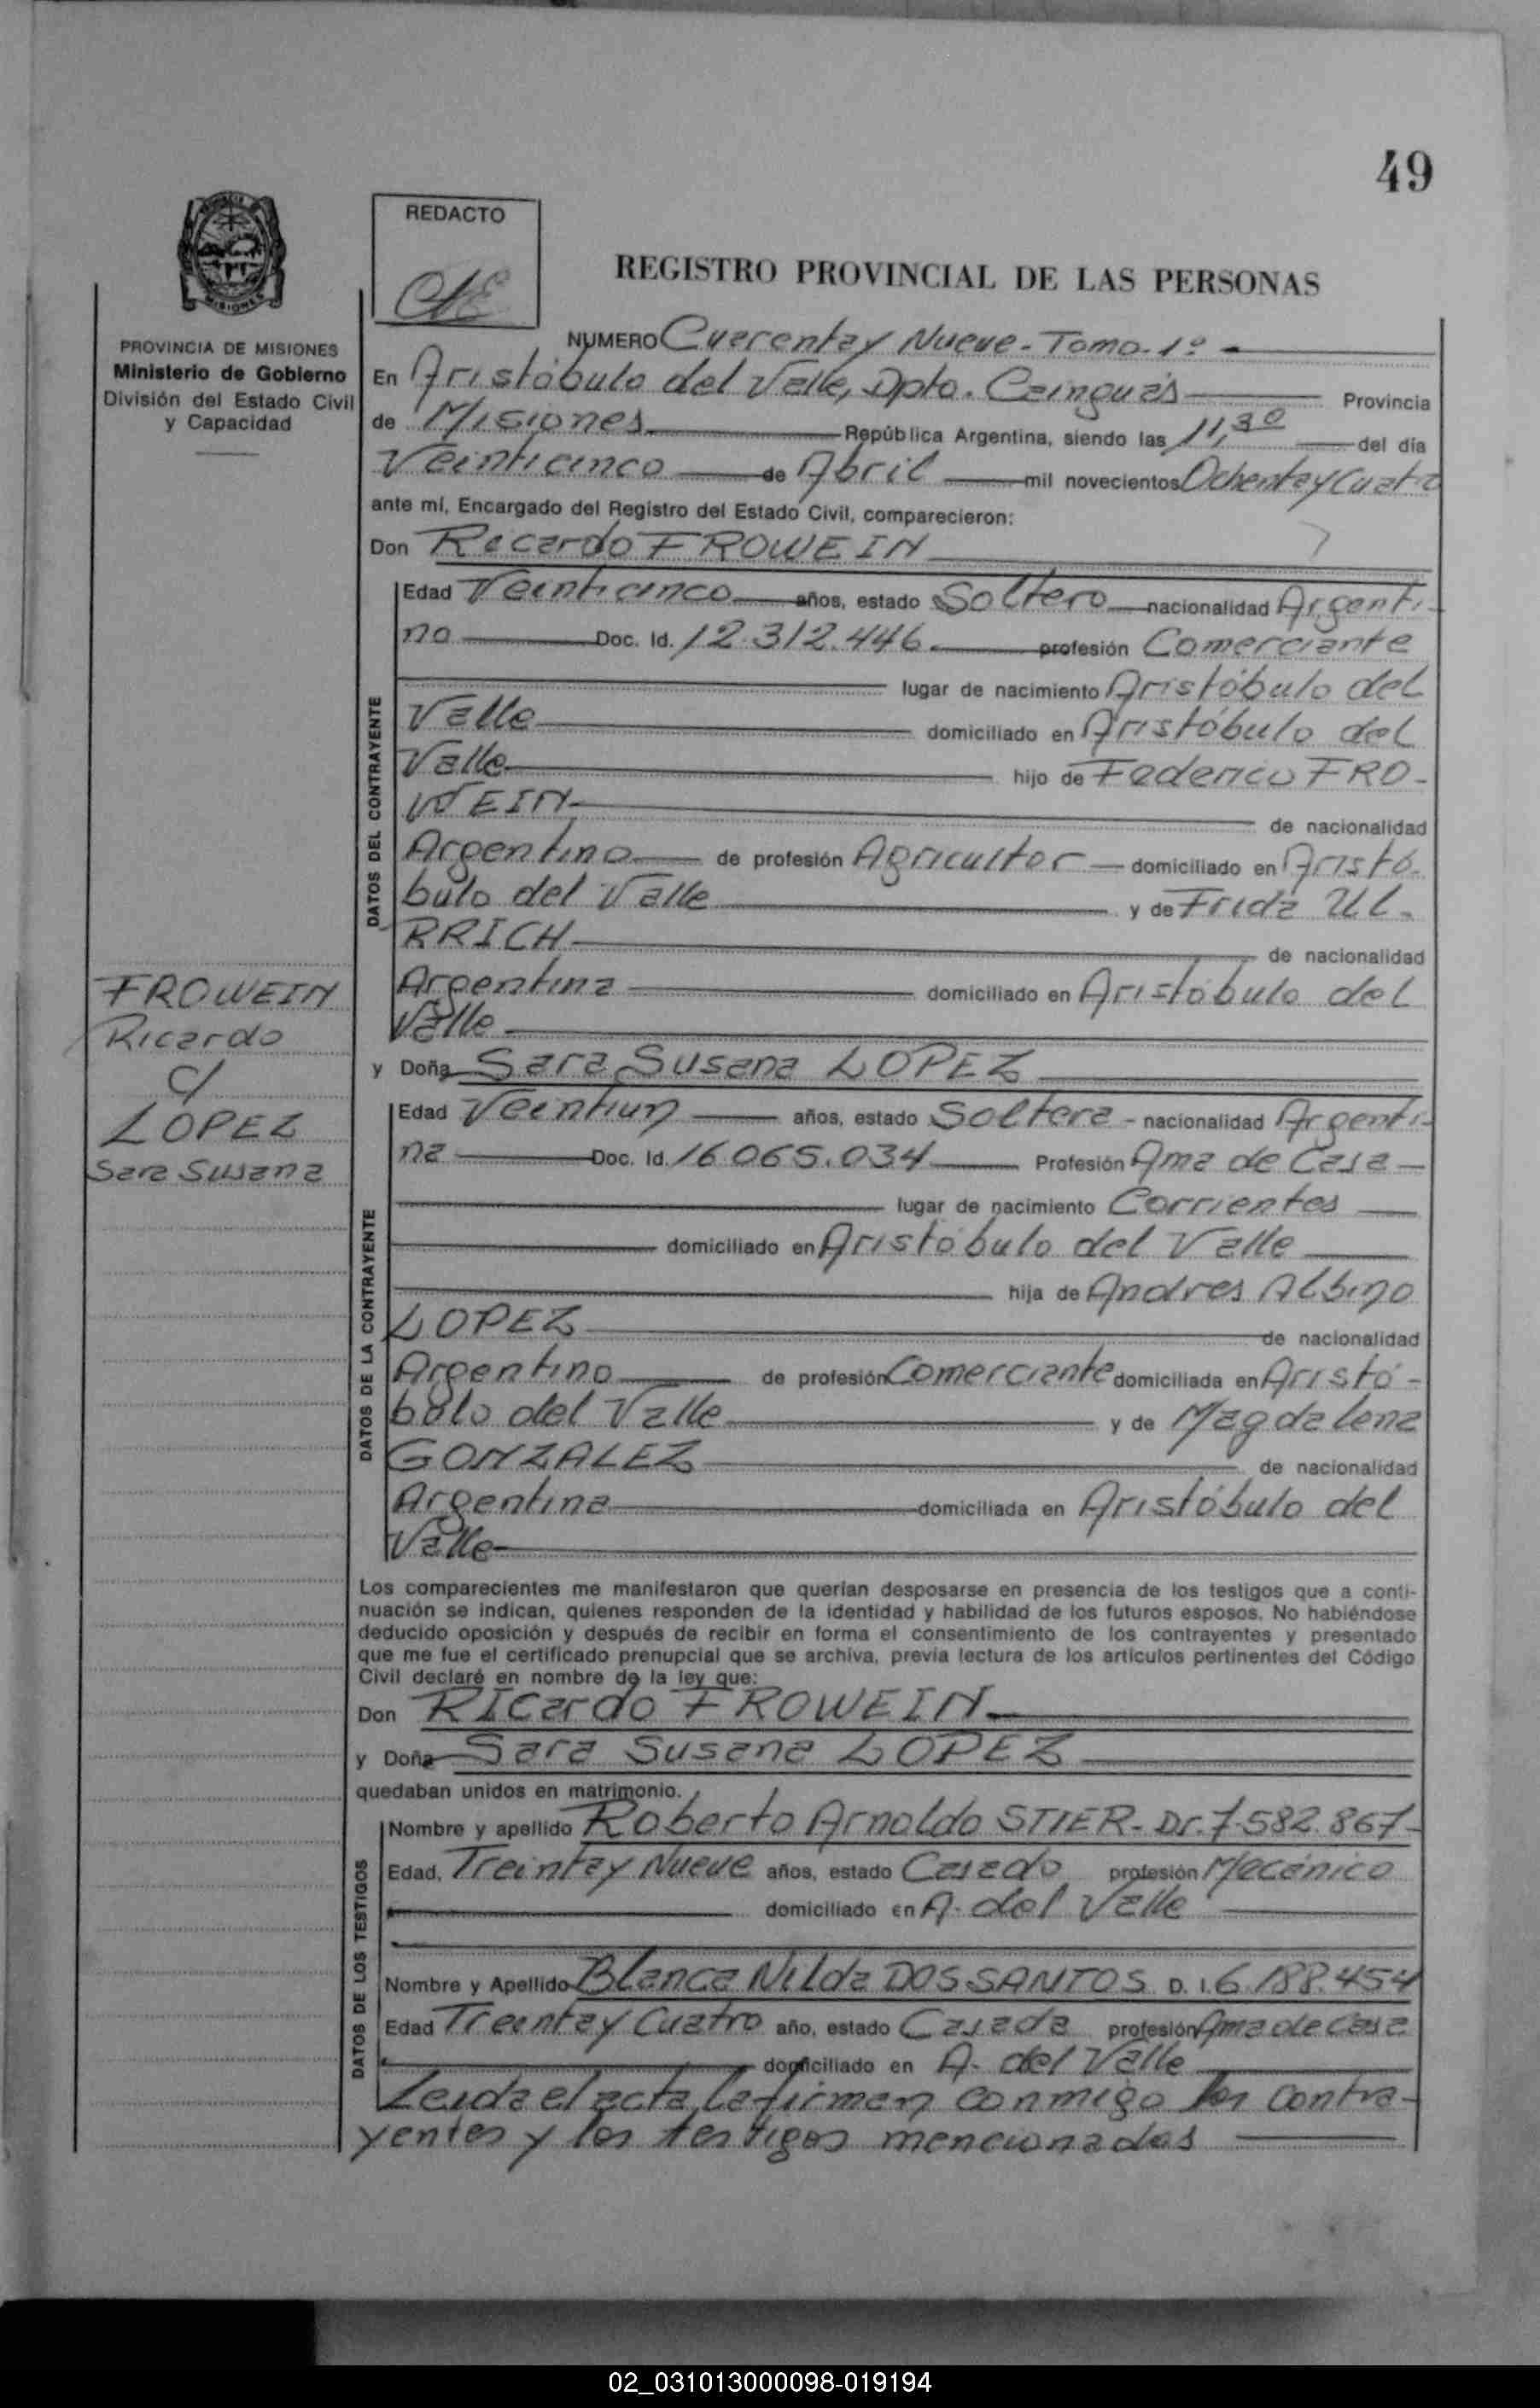 49
REDACTO
REGISTRO PROVINCIAL DE LAS PERSONAS
PROVINCIA DE MISIONES
Ministerio de Gobierno
División del Estado Civil
y Capacidad
NUMERO Cuarenta y Nueve - Tomo - 1º -
En Aristóbulo del Valle, Dpto. Cainguás Provincia
de Misiones República Argentina, siendo las 11,30 del día
Veinticinco de Abril mil novecientos Ochenta y Cuatro
ante mí, Encargado del Registro del Estado Civil, comparecieron:
Don Ricardo FROWEIN
DATOS DEL CONTRAYENTE
Edad Veinticinco años, estado Soltero nacionalidad Argenti-
no Doc. Id. 12.312.446 profesión Comerciante
lugar de nacimiento Aristóbulo del
Valle domiciliado en Aristóbulo del
Valle hijo de Federico FRO-
WEIN de nacionalidad
Argentino de profesión Agricultor domiciliado en Aristó-
bulo del Valle y de Frida UL-
RRICH de nacionalidad
Argentina domiciliado en Aristóbulo del
Valle
FROWEIN
Ricardo
c/
LOPEZ
Sara Susana
y Doña Sara Susana LOPEZ
DATOS DE LA CONTRAYENTE
Edad Veintiun años, estado Soltera - nacionalidad Argenti-
na Doc. Id. 16.065.034 Profesión Ama de Casa
lugar de nacimiento Corrientes
domiciliado en Aristóbulo del Valle
hija de Andres Albino
LOPEZ de nacionalidad
Argentino de profesión Comerciante domiciliada en Aristó-
bulo del Valle y de Magdalena
GONZALEZ de nacionalidad
Argentina domiciliada en Aristóbulo del
Valle
Los comparecientes me manifestaron que querían desposarse en presencia de los testigos que a conti-
nuación se indican, quienes responden de la identidad y habilidad de los futuros esposos. No habiéndose
deducido oposición y después de recibir en forma el consentimiento de los contrayentes y presentado
que me fue el certificado prenupcial que se archiva, previa lectura de los artículos pertinentes del Código
Civil declaré en nombre de la ley que:
Don Ricardo FROWEIN
y Doña Sara Susana LOPEZ
quedaban unidos en matrimonio.
DATOS DE LOS TESTIGOS
Nombre y apellido Roberto Arnoldo STIER - DI. 7.582.867-
Edad, Treinta y Nueve años, estado Casado profesión Mecánico
domiciliado en A. del Valle
Nombre y Apellido Blanca Nilda DOS SANTOS D. I. 6.188.454
Edad Treinta y Cuatro año, estado Casada profesión Ama de Casa
domiciliado en A. del Valle
Leida el acta, la firman conmigo los contra-
yentes y los testigos mencionados
02_031013000098-019194